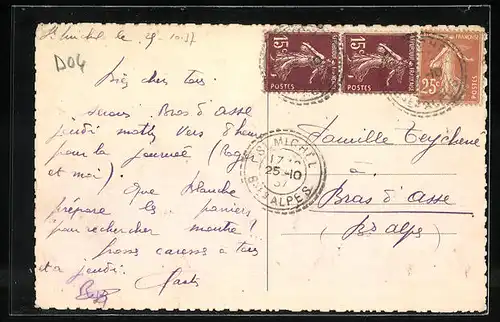 St Michel le 25-10-37
D04
Très chers tous.
serons Bras d'asse
jeudi matin vers 8 heures
pour la journée (Roger
et moi).
Que Blanche
prépare les paniers
pour rechercher
Grosses caresses à tous
et à jeudi.
15c
POSTES
15c
POSTES
25c
POSTES
ST MICHEL
17
25-10
37
BSES ALPES
Famille Teychené
à
Bras d'Asse
(Bses Alpes)